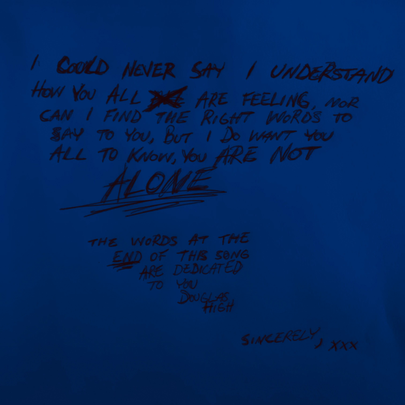 I COULD NEVER SAY I UNDERSTAND
HOW YOU ALL ARE FEELING, NOR
CAN I FIND THE RIGHT WORDS TO
SAY TO YOU, BUT I DO WANT YOU
ALL TO KNOW, YOU ARE NOT
ALONE
THE WORDS AT THE
END OF THIS SONG
ARE DEDICATED
TO YOU
DOUGLAS
HIGH
SINCERELY, XXX